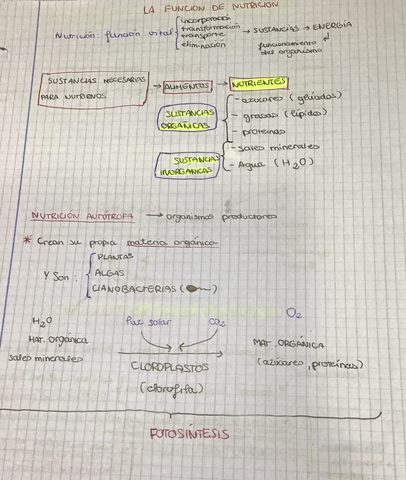 LA FUNCION DE NUTRICION
Nutrición: función vital { incorporación
transformación
transporte
eliminación
→ SUSTANCIAS → ENERGÍA
funcionamiento
del organismo
SUSTANCIAS NECESARIAS
PARA NUTRIRNOS
→ ALIMENTOS → NUTRIENTES
SUSTANCIAS
ORGÁNICAS
- azucares (glúcidos)
- grasas (lípidos)
- proteinas
SUSTANCIAS
INORGÁNICAS
- sales minerales
- Agua (H2O)
NUTRICIÓN AUTÓTROFA → organismos productores
* Crean su propia materia orgánica
Y Son: { PLANTAS
ALGAS
CIANOBACTERIAS
H2O
Mat. orgánica
sales minerales
luz solar
CO2
O2
CLOROPLASTOS
(clorofila)
MAT. ORGÁNICA
(azúcares, proteínas)
FOTOSÍNTESIS